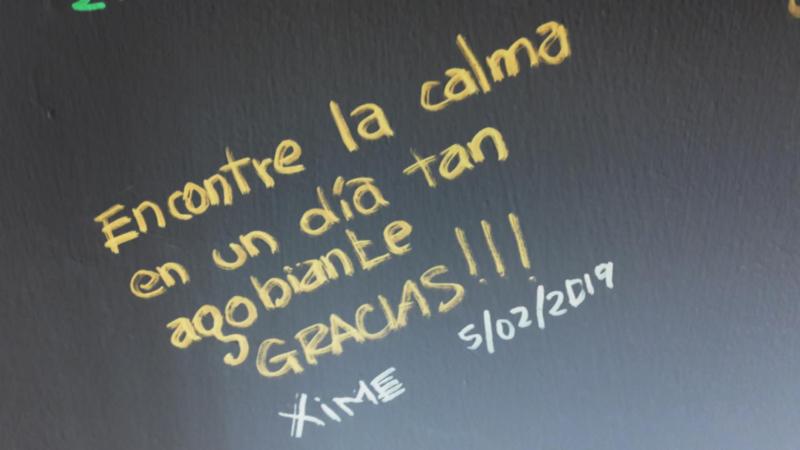 Encontre la calma
en un día tan
agobiante
GRACIAS!!!
5/02/2019
XiME